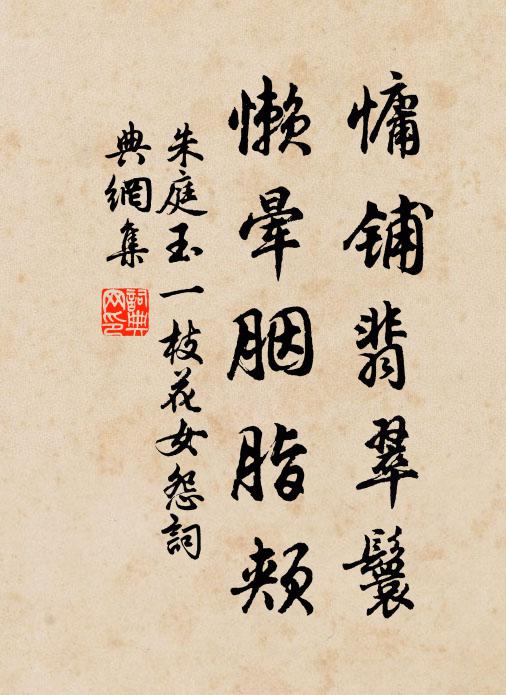 慵铺翡翠鬟
懒晕胭脂颊
朱庭玉一枝花女怨詞
典網集
詞典
网印